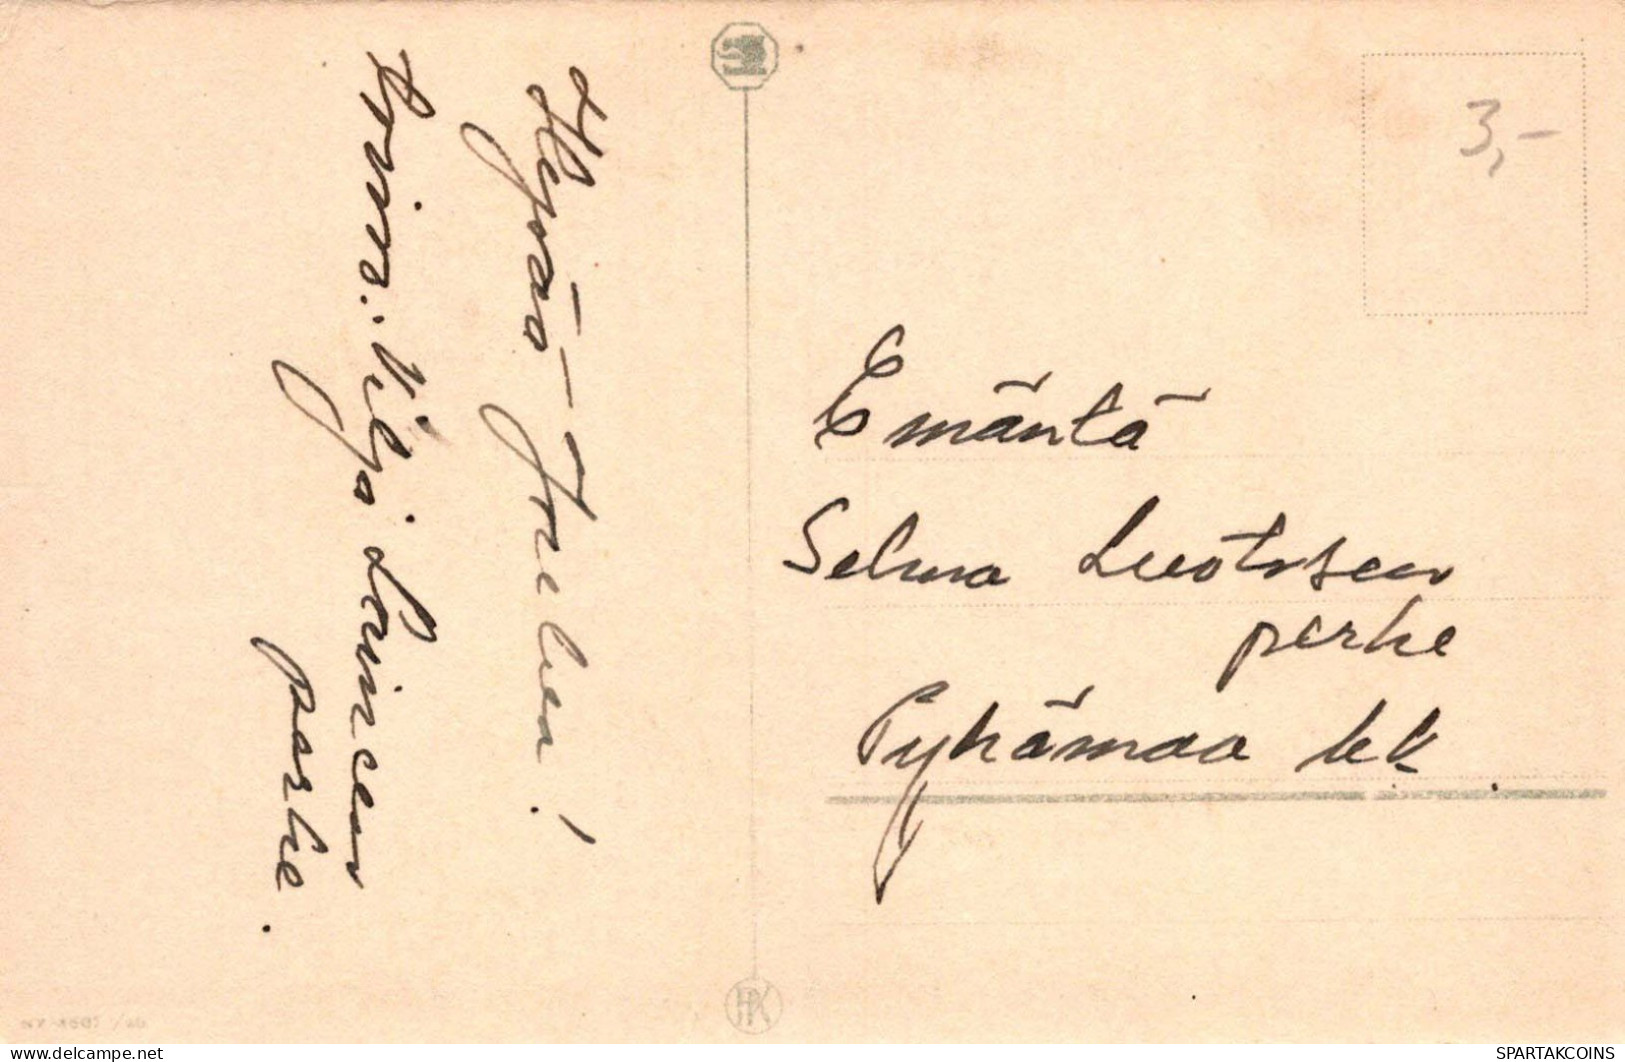 Hyvää-Joulua!
toivo. Vilja Laineen
perhe.
3,-
Emäntä
Selma Luotosen
perhe
Pyhämaa kk.
PK
SPARTAKCOINS
www.delcampe.net